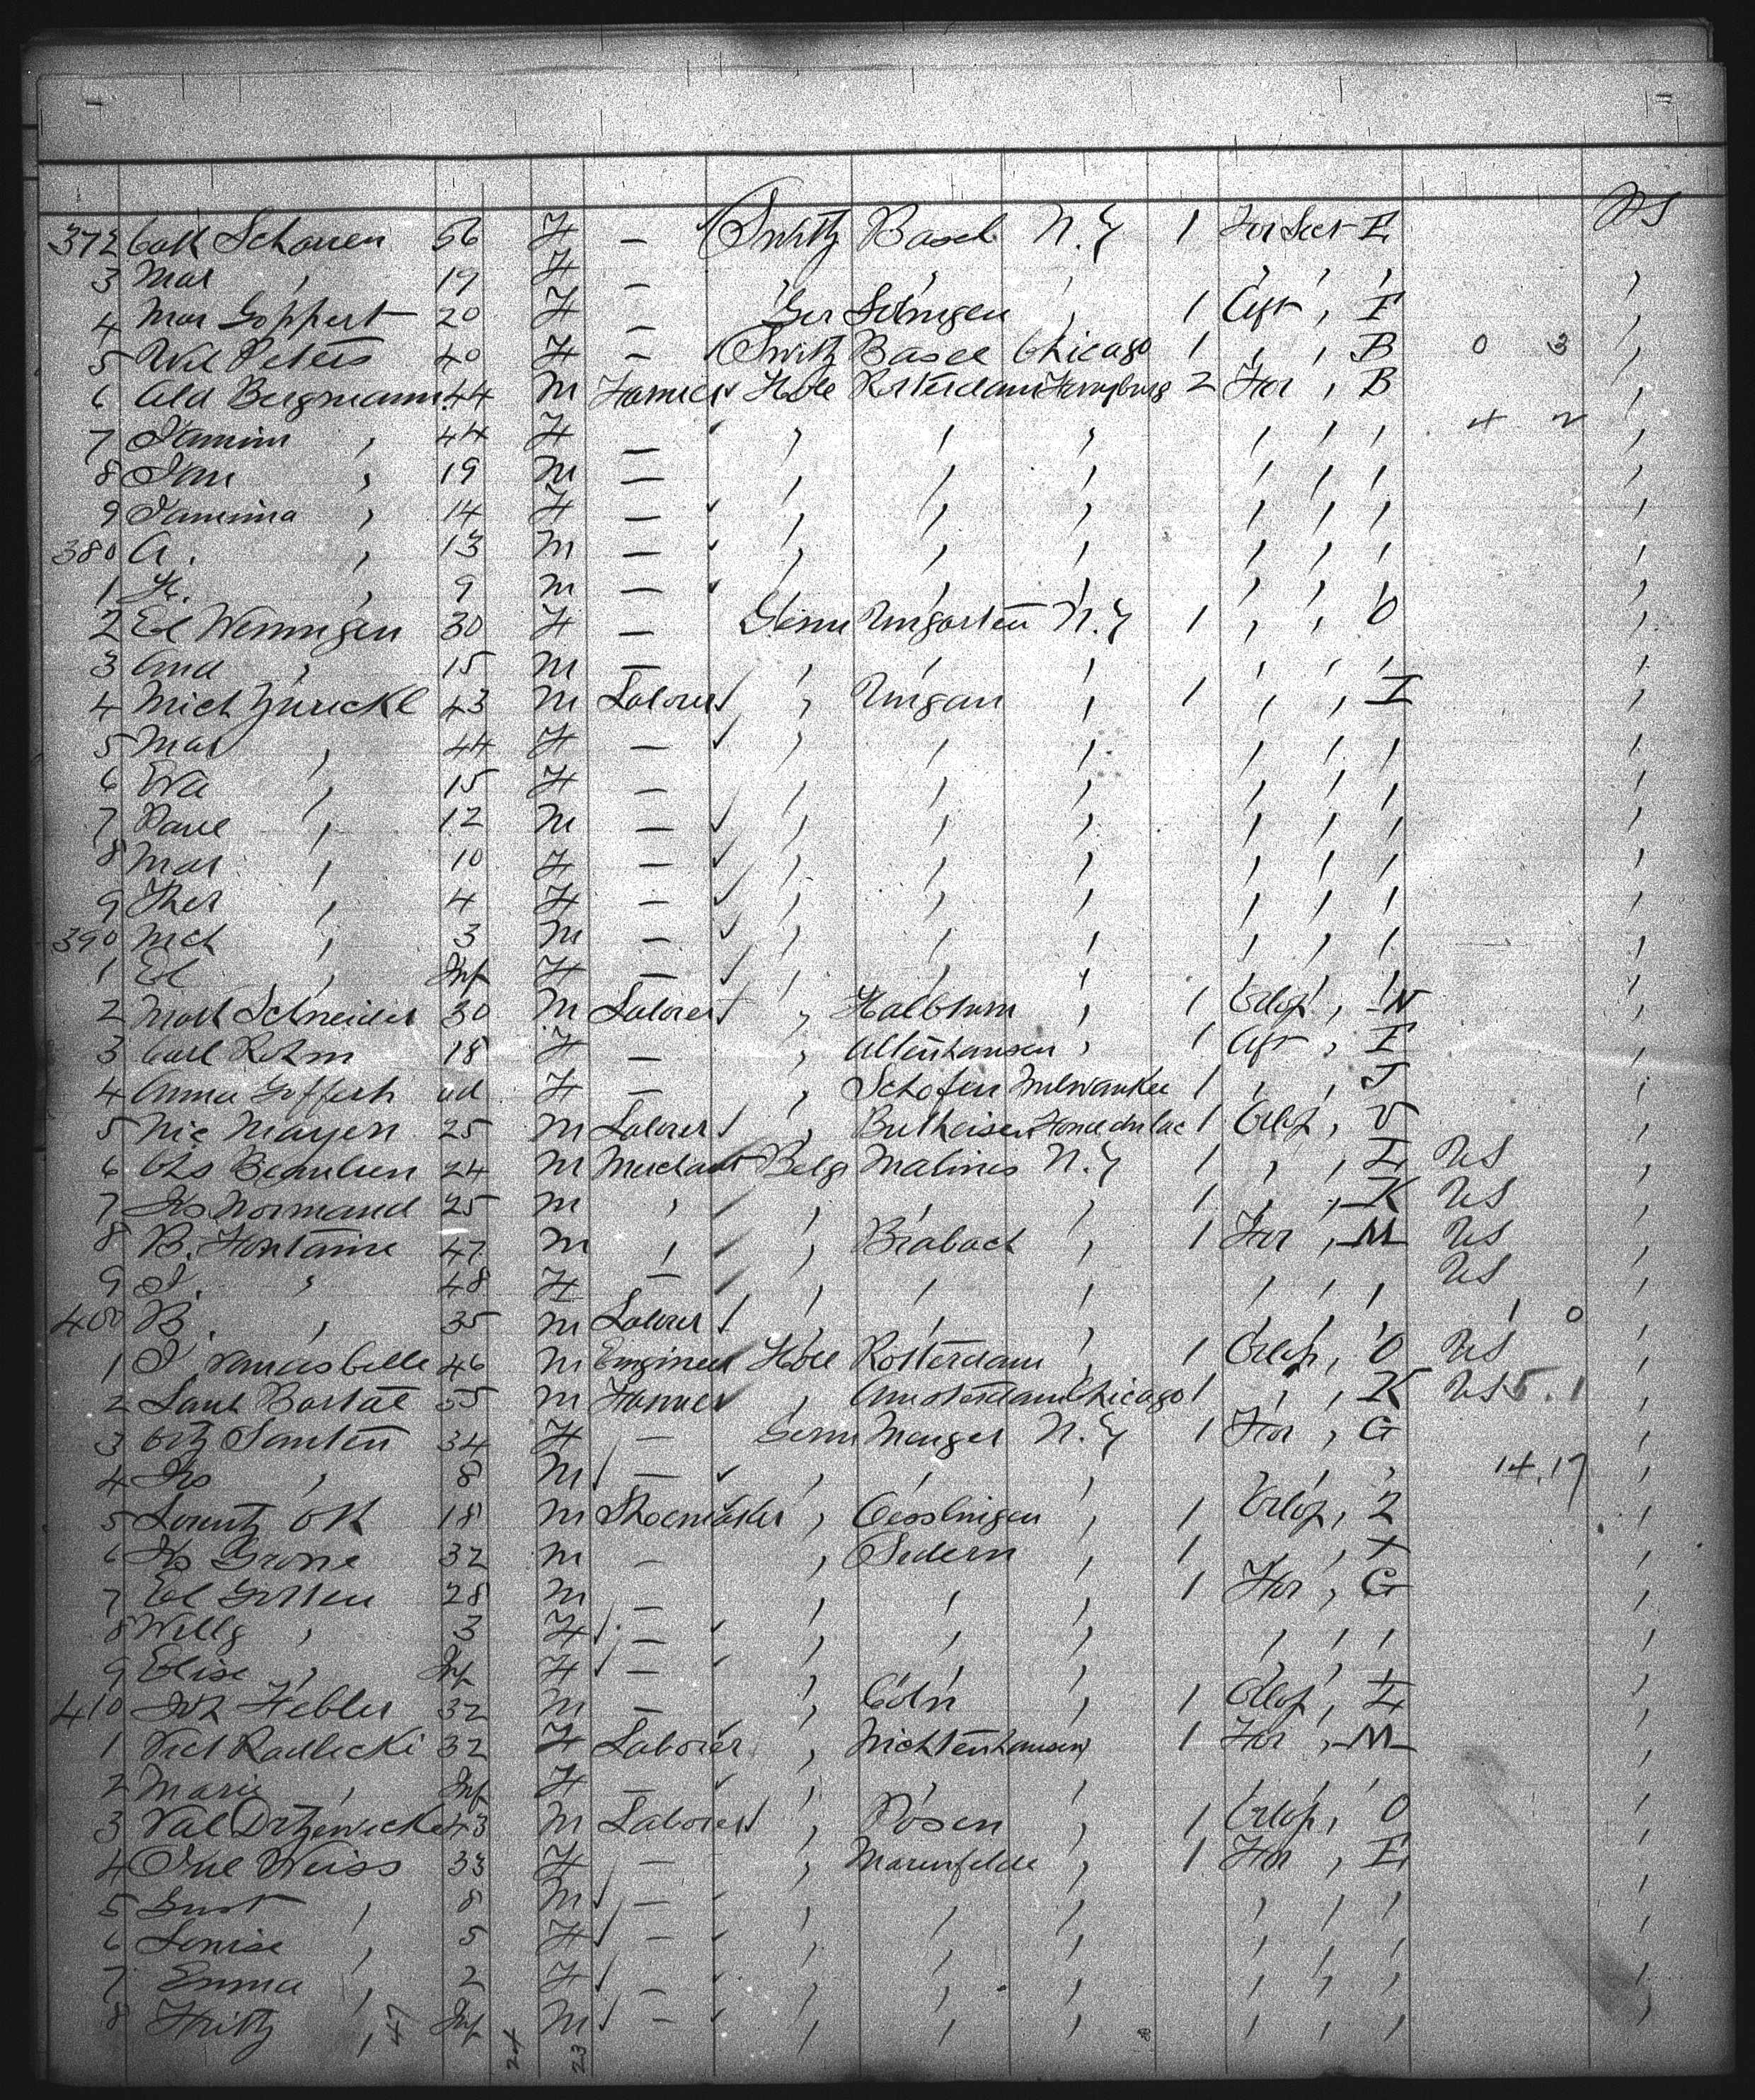 US
372 Cath Schauen 56 F — Switz Basel N.Y 1 For Sect E
3 Mar , 19 F — , , , , , , ,
4 Mar Goppert 20 F — Ger , 1 Aft , F ,
5 Wil Peters 40 F — Switz Basel Chicago 1 , , B 0 3 ,
6 Ald Bergmann 44 M Farmer Holl Rotterdam 2 For , B ,
7 , 44 F — , , , , , , 4 2 ,
8 Jan , 19 M — , , , , , , ,
9 Jamima , 14 F — , , , , , , ,
380 A. , 13 M — , , , , , , ,
1 H. , 9 M — , , , , , , ,
2 El Wenningen 30 F — Germ Ungarten N.Y 1 , , O ,
3 And , 15 M — , , , , , , ,
4 Mich Zurickl 43 M Laborer , Ungarn , 1 , , I ,
5 Mar , 44 F — , , , , , , ,
6 Eva , 15 F — , , , , , , ,
7 Paul , 12 M — , , , , , , ,
8 Mar , 10 F — , , , , , , ,
9 Ther , 4 F — , , , , , , ,
390 Mch , 3 M — , , , , , , ,
1 El , Inf F — , , , , , , ,
2 Mart Schneider 30 M Laborer , Halbturn , 1 Orlop , N ,
3 Carl Rohm 18 F — , Altenhausen , 1 Aft , F ,
4 Anna ad F — , Schofen Milwaukee 1 , , J ,
5 Nic Mayen 25 M Laborer , Fond du lac 1 Orlop , V ,
6 Chs Beaulieu 24 M Merchant Belg Malines N.Y 1 , , L US ,
7 Js Normand 25 M , , , , 1 , , K US ,
8 B. Fontaine 47 M , , Brabach , 1 For , M US ,
9 J. , 48 F — , , , , , , US ,
400 B. , 35 M Laborer , , , , , , 1 0 ,
1 J. 46 M Engineer Holl Rotterdam , 1 Orlop , O US ,
2 55 M Farmer , Amsterdam Chicago 1 , , K US 5.1 ,
3 34 F — Germ Menger N.Y 1 For , G ,
4 Js , 8 M — , , , , , , 14.19 ,
5 Lorentz Ott 18 M Shoemaker , Oesslingen , 1 Orlop , Z ,
6 Js Grosse 32 M — , Sedern , 1 , X ,
7 El 28 M — , , , 1 For , G ,
8 Willy , 3 F — , , , , , , ,
9 Elise , Inf F — , , , , , , ,
410 Joh Hebler 32 M — , Cöln , 1 Orlop , L ,
1 Vict Radlecki 32 F Laborer , Nichtenhausen 1 For , M ,
2 Marie , Inf F — , , , , , , ,
3 Val 43 M Laborer , Posen , 1 Orlop , O ,
4 Jul Weiss 33 F — , Marienfelde , 1 For , E ,
5 Gust , 8 M — , , , , , , ,
6 Louise , 5 F — , , , , , , ,
7 Emma , 2 F — , , , , , , ,
8 Fritz , Inf M — , , , , , , ,
47 24 23